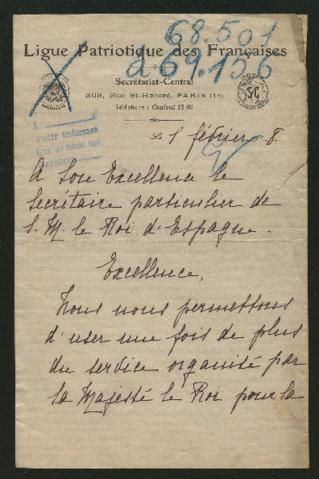 68.501
Ligue Patriotique des Françaises
a 69.156
Secrétariat-Central
368, Rue St-Honoré, PARIS (1er)
Téléphone : Central
Petit
Le 1 février 8.
A Son Excellence le
Secrétaire particulier de
S. M. le Roi d'Espagne.
Excellence,
Nous nous permettons
d'user une fois de plus
du service organisé par
Sa Majesté le Roi pour la